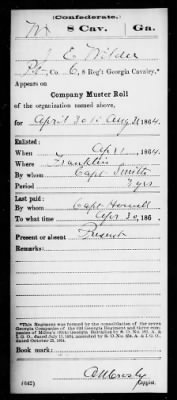 (Confederate.)
W 8 Cav. Ga.
J E Wilder
Pvt, Co. C, 8 Reg't Georgia Cavalry.*
Appears on
Company Muster Roll
of the organization named above,
for April 30 to Aug 31, 1864.
Enlisted:
When Apr 1, 1864.
Where Franklin
By whom Capt Smith
Period 3 yrs
Last paid:
By whom Capt Howell
To what time Apr 30, 186
Present or absent Present
Remarks:
*This Regiment was formed by the consolidation of the seven Georgia Companies of the
Book mark:
(642) Copyist.